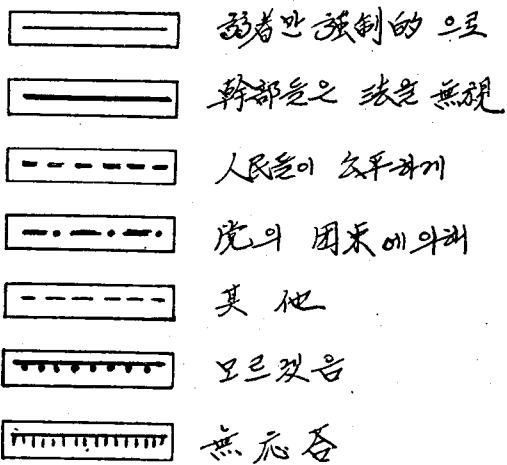 弱者만 强制的 으로
幹部들은 法을 無視
人民들이 公平하게
党의 团束에의해
其他
모르겠음
無応答